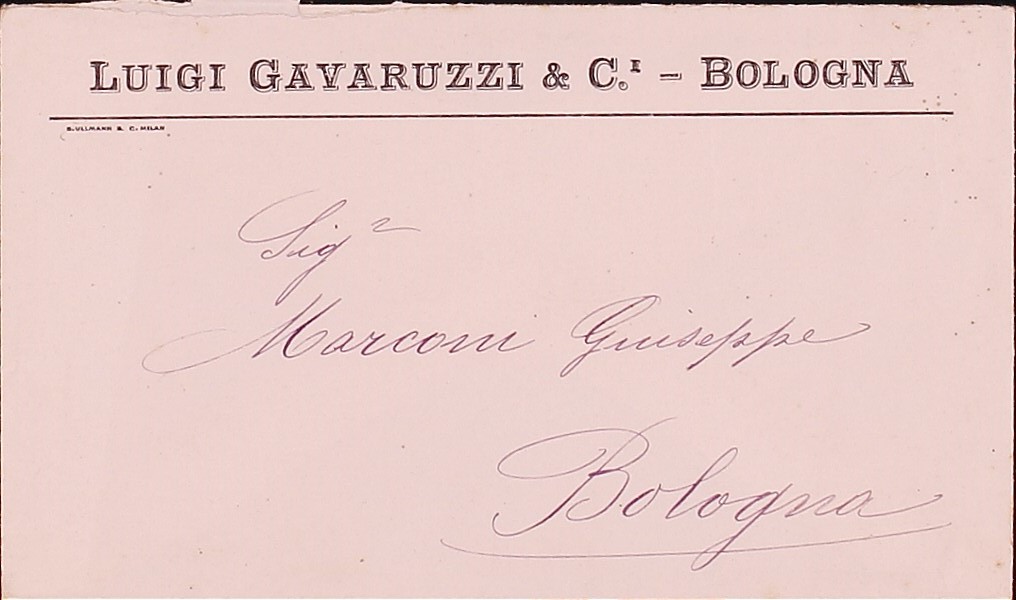 LUIGI GAVARUZZI & C.I – BOLOGNA
S. ULLMANN & C. MILAN
Sigr
Marconi Giuseppe
Bologna